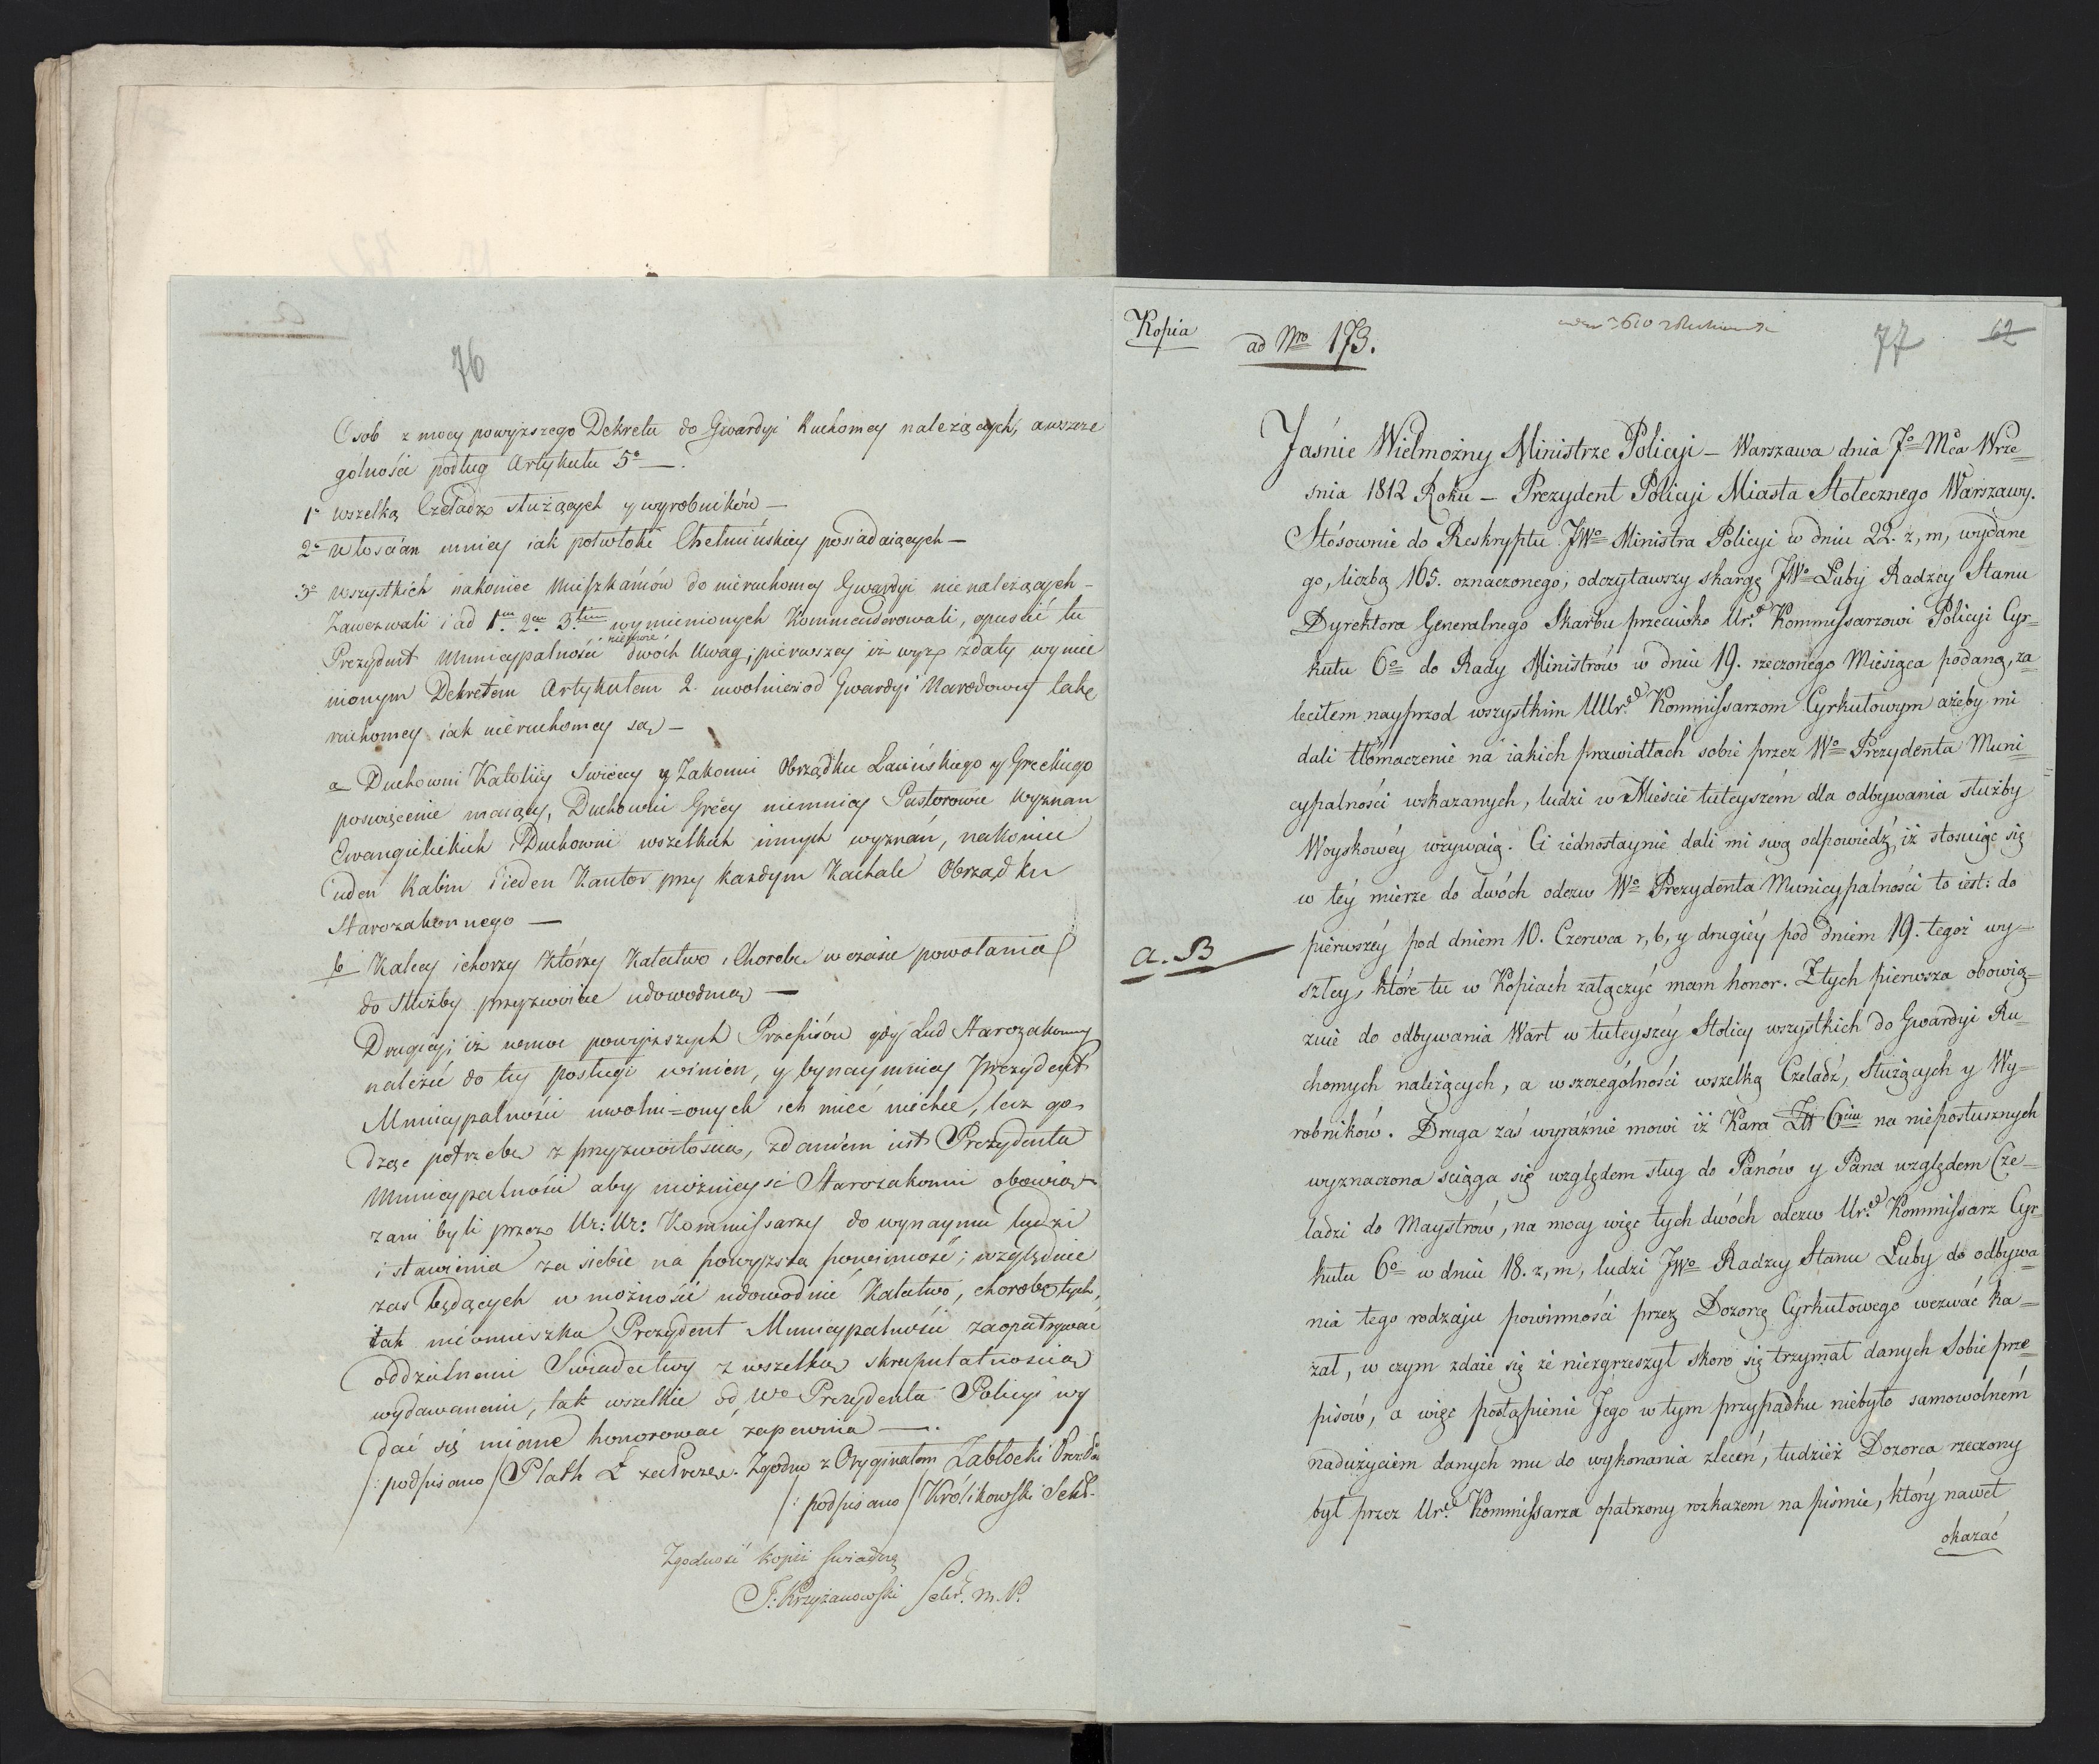 76
Osob z mocy powyższego Dekretu do Gwardyi Ruchomey należących, a wszcze
gólności podług Artykułu 5º —
1º wszelką Czeladz służących y wyrobników —
2º Włościan mniey iak półwłoki Chełmińskiey posiadaiących —
3º wszystkich nakoniec Mieszkańców do nieruchomey Gwardyi nie należących –
Zawezwali i ad 1um 2um 3tium wymienionych Kommenderowali, opuścić tu
Prezydent Municypalności niemoże dwóch Uwag; pierwszey iż wyż zdaty wymie
nionym Dekretem Artykułem 2. uwolnieni od Gwardyi Narodowey tak
ruchomey iak nieruchomey są —
a Duchowni Katoliccy Swieccy y Zakonni Obrządku Łacińskiego y Greckiego
poswięcenie maiący, Duchowni Greccy niemniey Pastorowie wyznań
Ewangielickich i Duchowni wszelkich innych wyznań, nakoniec
ieden Rabin i ieden Kantor przy każdym Kachale Obrządku
Starozakonnego —
b Kalecy i chorzy którzy Kalectwo i Chorobę w czasie powołania
do służby przyzwoicie udowodnią —
Drugiey; iż wmoc powyższych Przepisów gdy Lud Starozakonny
należeć do tey posługi winien, y bynaymniey Prezydent
Municypalności uwolni=onych ich mieć niechce, lecz go
dząc potrzebę z przyzwoitością, zdaniem iest Prezydenta
Municypalności aby możnieysi Starozakonni obowią
zani byli przez Ur: Ur: Kommissarzy do wynaymu ludzi
i stawienia za siebie na powyższą powinność; względnie
zas będących w możności udowodnić Kalectwo, chorobę tych,
iak nieomieszka Prezydent Municypalności zaopatrywać
oddzielnemi Swiadectwy z wszelką skrupulatnością
wydawanemi, tak wszelkie od Wº Prezydenta Policyi wy
dać się miane honorować zapewnia —
/: podpisano / Plath Ł zaPrezę. Zgodno z Oryginałem Zabłocki Prezdt
/: podpisano / Królikowski Sekt.
Zgodność kopii swiadczę
J: Krzyżanowski Sekr. m. P.
Kopia
ad Nro 173.
77
62
Jaśnie Wielmożny Ministrze Policyi — Warszawa dnia 7º Mca Wrze=
śnia 1812 Roku — Prezydent Policyi Miasta Stołecznego Warszawy.
Stósownie do Reskryptu JWº Ministra Policyi w dniu 22. z, m, wydane=
go, liczbą 165. oznaczonego, odczytawszy skargę JWº Łuby Radzcy Stanu
Dyrektora Generalnego Skarbu przeciwko Ur. Kommissarzowi Policyi Cyr=
kułu 6º do Rady Ministrów w dniu 19. rzeczonego Miesiąca podaną, za=
leciłem nayprzod wszystkim UUr. Kommissarzom Cyrkułowym ażeby mi
dali tłómaczenie na iakich prawidłach sobie przez Wº Prezydenta Muni=
cypalności wskazanych, ludzi w Mieście tuteyszém dla odbywania służby
Woyskowéy wzywaią. Ci iednostaynie dali mi swą odpowiedź, iż stosuiąc się
w téy mierze do dwóch odezw Wº Prezydenta Municypalności to iest: do
a. B
piérwszéy pod dniem 10. Czerwca r, b, y drugiéy pod dniem 19. tegoż wy=
szłey, które tu w Kopiach załączyć mam honor. Z tych piérwsza obowią=
zuie do odbywania Wart w tuteyszéy Stolicy wszystkich do Gwardyi Ru=
chomych należących, a w szczególności wszelką Czeladź, Służących y Wy=
robników. Druga zaś wyraźnie mowi iż Kara Zł 6ciu na nieposłusznych
wyznaczona sciąga się względem sług do Panów y Pana względem Cze=
ladzi do Maystrów, na mocy więc tych dwóch odezw Ur. Kommissarz Cyr=
kułu 6º w dniu 18. z, m, ludzi JWº Radzcy Stanu Łuby do odbywa
nia tego rodzaju powinności przez Dozorcę Cyrkułowego wezwać ka=
zał, w czym zdaie się że niezgrzeszył skoro się trzymał danych Sobie prze=
pisów, a więc postąpienie Jego w tym przypadku niebyło samowolném
nadużyciem danych mu do wykonania zleceń, tudzież Dozorca rzeczony
był przez Ur. Kommissarza opatrzony rozkazem na piśmie, który nawet
okazać